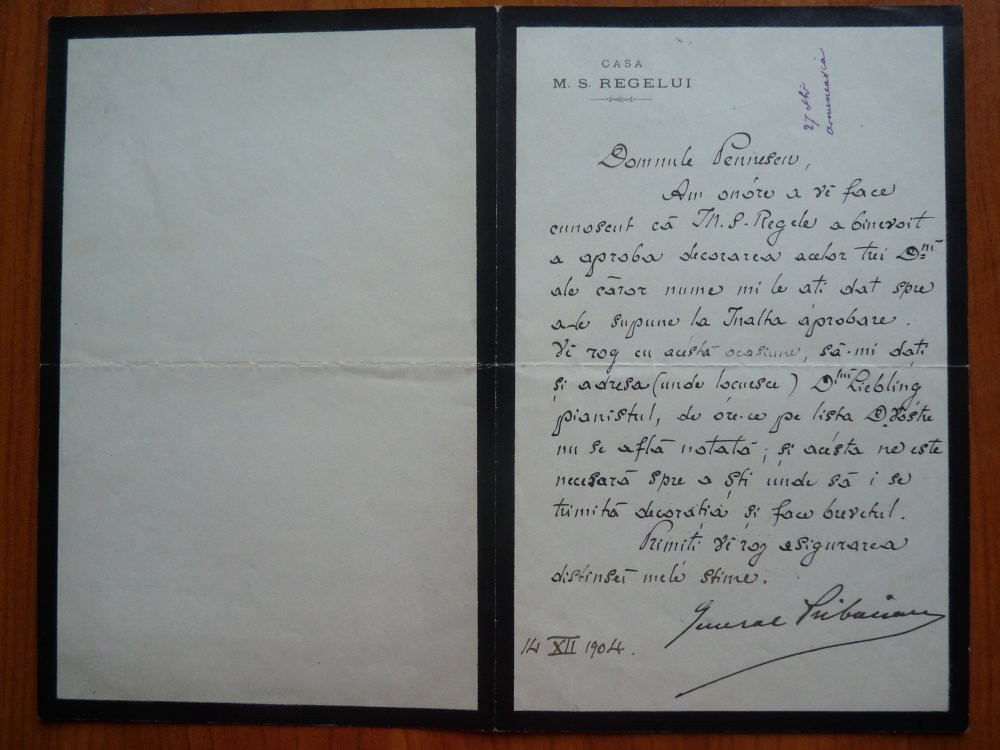 CASA
M. S. REGELUI
Domnule Pennescu,
Am onóre a vĕ face
cunoscut că M. S. Regele a binevoit
a aproba decorarea acelor trei D-nii
ale căror nume mi le ati dat spre
a-le supune la Inalta aprobare.
Vĕ rog cu acéstă ocasiune, să-mi dați
și adresa (unde locuesce) D-lui Liebling
pianistul, de óre-ce pe lista D. Vóstre
nu se află notată; și acésta ne este
necesară spre a ști unde să i se
trimită decorația și face brevetul.
Primiți vĕ rog asigurarea
distinsei mele stime.
General Priboianu
14 XII 1904.
27